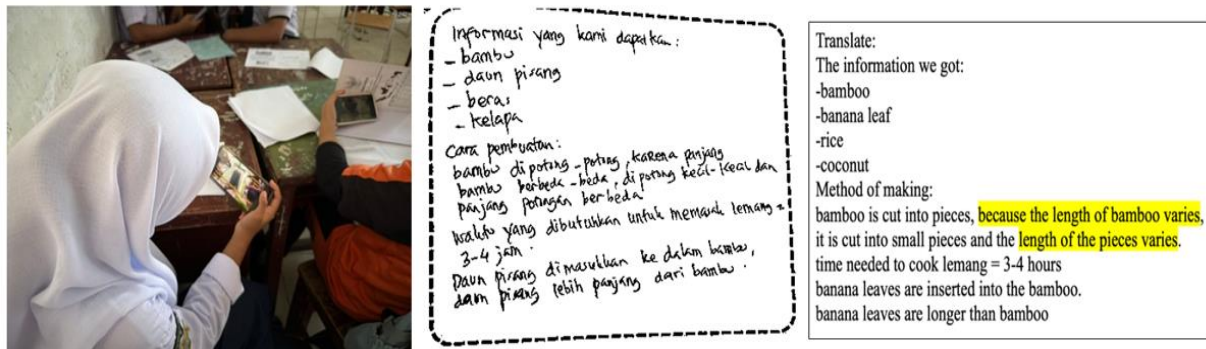 Informasi yang kami dapatkan:
- bambu
- daun pisang
- beras
- kelapa
Cara pembuatan:
bambu dipotong-potong, karena panjang
bambu berbeda-beda, dipotong kecil-kecil dan
panjang potongan berbeda
waktu yang dibutuhkan untuk memasak lemang =
3-4 jam.
Daun pisang dimasukkan ke dalam bambu,
daun pisang lebih panjang dari bambu.
Translate:
The information we got:
-bamboo
-banana leaf
-rice
-coconut
Method of making:
bamboo is cut into pieces, because the length of bamboo varies,
it is cut into small pieces and the length of the pieces varies.
time needed to cook lemang = 3-4 hours
banana leaves are inserted into the bamboo.
banana leaves are longer than bamboo